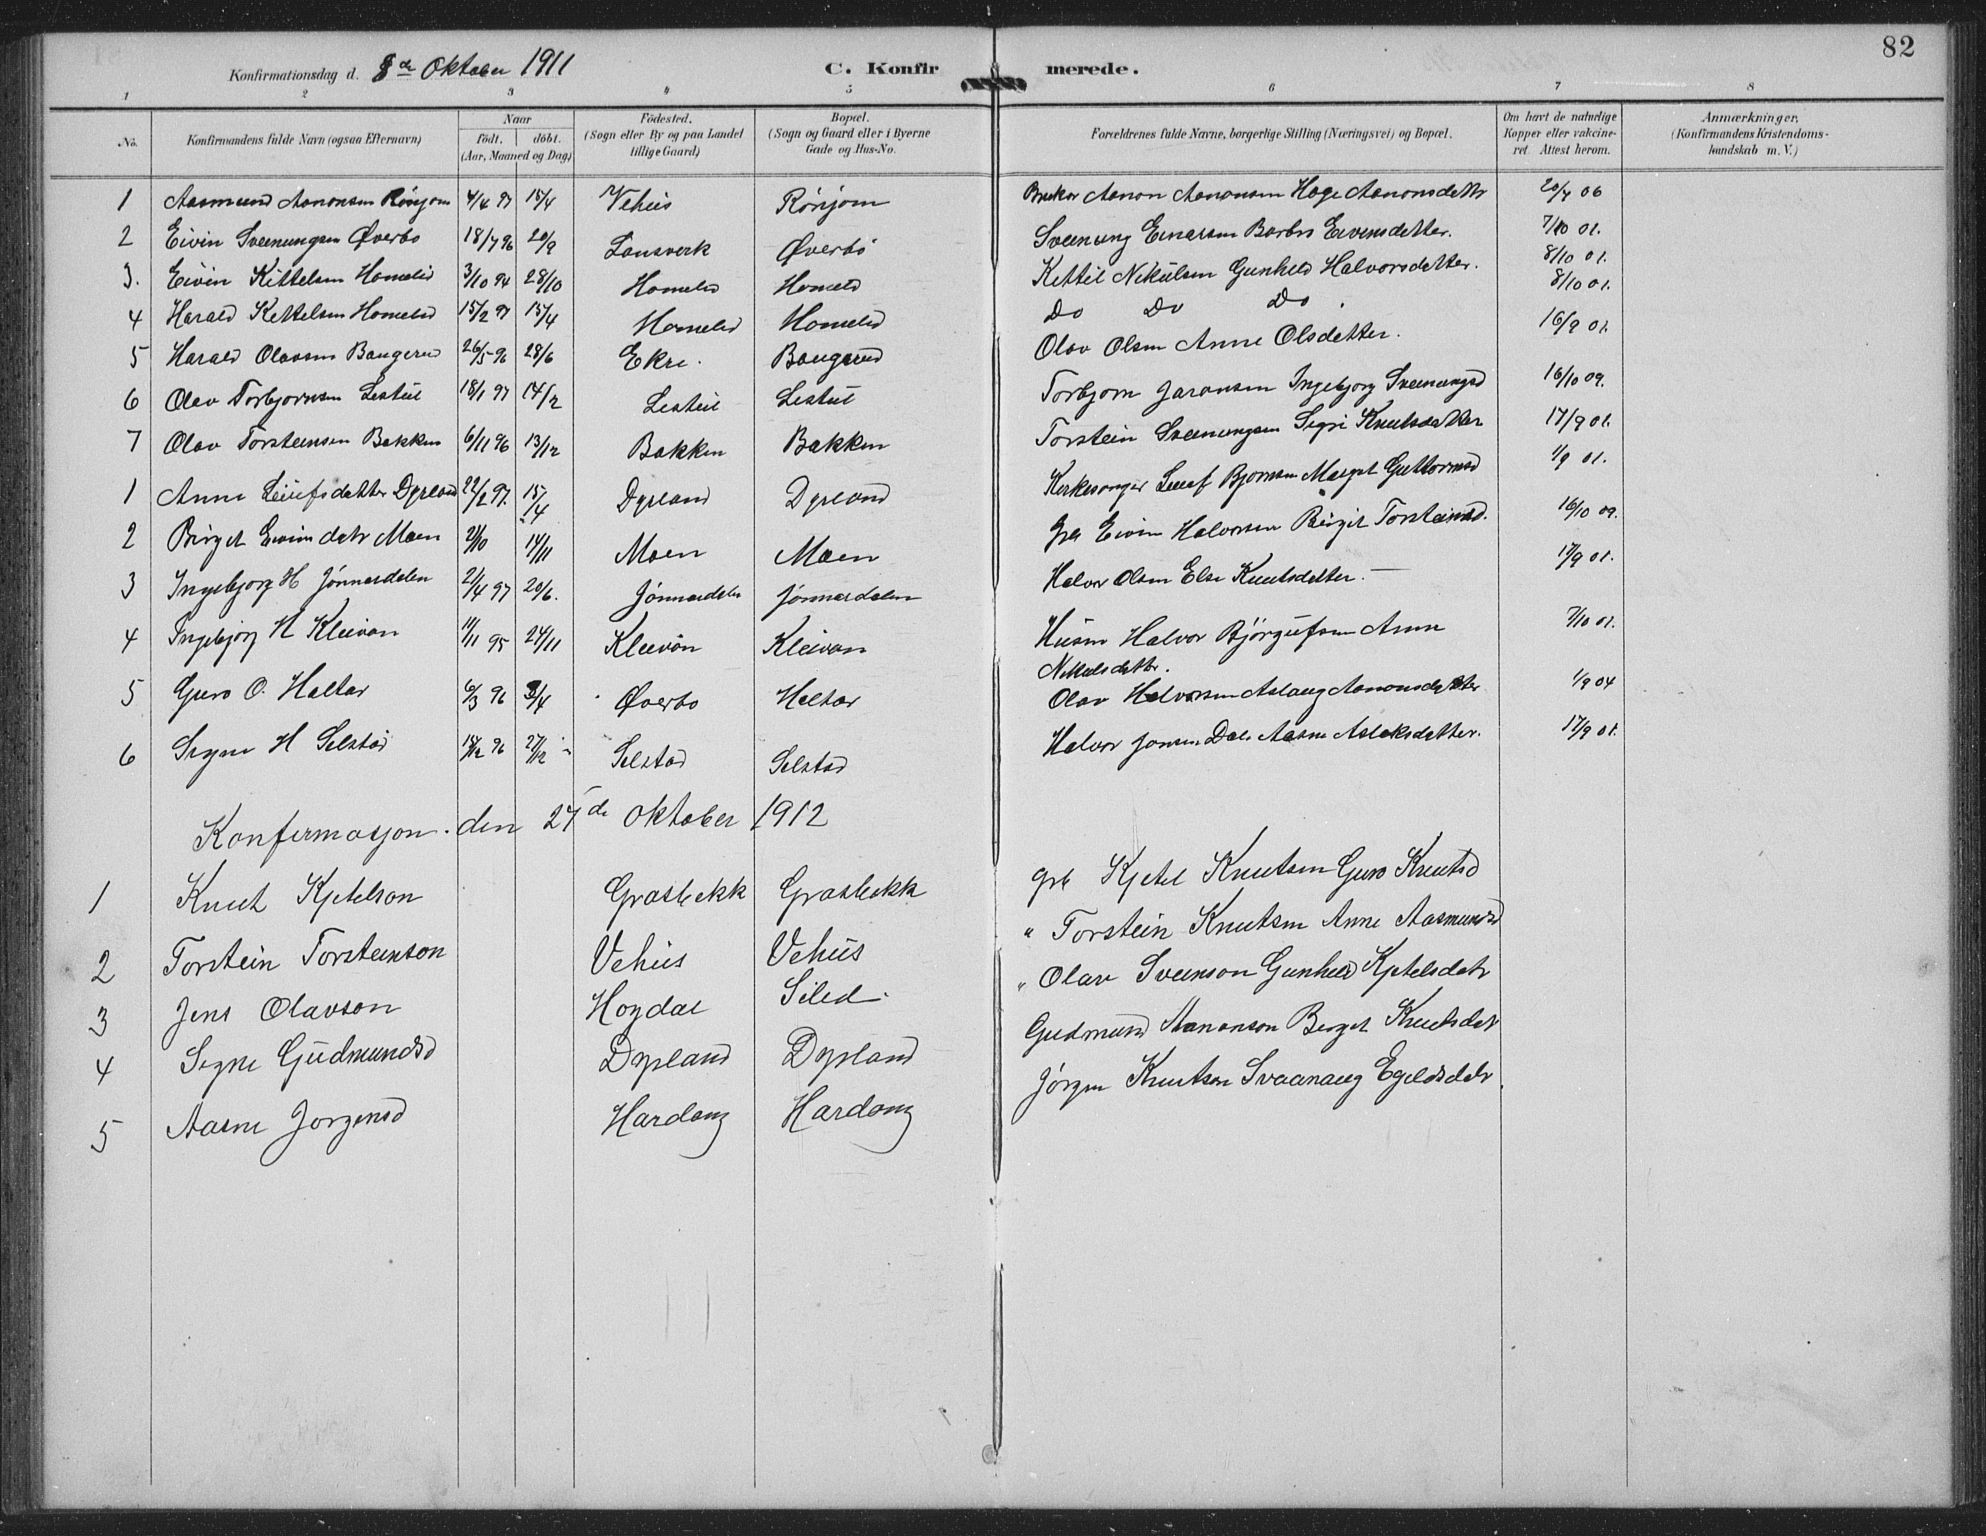 82
Konfirmationsdag d. 8de Oktober 1911 C. Konfirmerede.
1 2 3 4 5 6 7 8
No. Konfirmandens fulde Navn (ogsaa Efternavn) Naar født. døbt. (Aar, Maaned og Dag) Fødested. (Sogn eller By og paa Landet tillige Gaard) Bopæl. (Sogn og Gaard eller i Byerne Gade og Hus-No. Forældrenes fulde Navne, borgerlige Stilling (Næringsvei) og Bopæl. Om havt de naturlige Kopper eller vakcineret. Attest herom. Anmærkninger, (Konfirmandens Kristendomskundskab m. V.)
1 Aasmund Aanonsen Rönjom 4/4 97 15/4 Vehus Rönjom Bruker Aanon Aanonsen Hæge Aanonsdettr 20/4 06
2 Eivin Sveinungsen Øverbö 18/7 96 20/9 Lonsverk Øverbö Sveinung Einarsen Barbro Eivinsdetter. 7/10 01.
3. Eivin Kittelsen Homelid 3/10 94 28/10 Homelid Homelid Kettil Nikulsen Gunhild Halvorsdetter. 8/10 01.
4 Harald Kettelsen Homelid 15/2 97 15/4 Homelid Homelid Do Do Do. 8/10 01.
5 Harald Olavsen Baugerud 26/5 96 28/6 Ekre. Baugerud Olav Olsen Anne Olsdetter. 16/9 01.
6 Olav Torbjornsen Lestul 18/1 97 14/2 Lestul Lestul Torbjorn Jaransen Ingebjorg Sveinungsd 16/10 09.
7 Olav Torsteinsen Bakken 6/11 96 13/12 Bakken Bakken Torstein Sveinungsen Sigri Knutsdetter 17/9 01.
1 Anne Leiufsdatter Dyrland 22/2 97. 15/4 Dyrland Dyrland Kirkesanger Leiuf Bjornsen Margit Guttormsd 1/9 01.
2 Birgit Eivinsdatr Moen 2/10 14/11 Moen Moen Gbr Eivin Halvorsen Birgit Torsteinsd. 16/10 09.
3 Ingebjorg H Jönnardalen 21/4 97 20/6. Jönnardalen Jönnardalen Halvor Olsen Else Knutsdetter. — 17/9 01.
4 Ingebjörg H Kleivan 11/11 95 24/11 Kleivan Kleivan Husm Halvor Björgufsen Anne 7/10 01.
Nikulsdetter.
5 Guro O. Haltar 6/3 96 3/4 Øverbö Haltar Olav Halvorsen Aslaug Aanonsdetter 1/9 04
6 Signe H Selstad 15/12 96 27/12 Selstad Selstad Halvor Jonsen Dale Aasne Aslaksdetter. 17/9 01.
Konfirmasjon. den 27de Oktober 1912
1 Knut Kjetelson Grasbekk Grasbekk grb Kjetel Knutsen Guro Knutsd
2 Torstein Torsteinson Vehus Vehus " Torstein Knutsen Anne Aasmundsd
3 Jens Olavson Hogdal Silid. " Olav Sveinson Gunhild Kjetelsdatr
4 Signe Gudmundsd Dyrland Dyrland Gudmund Aananson Birgit Knutsdatr
5 Aasne Jorgensd Hardang Hardang Jörgen Knutson Svaanaug Egilsdatr.